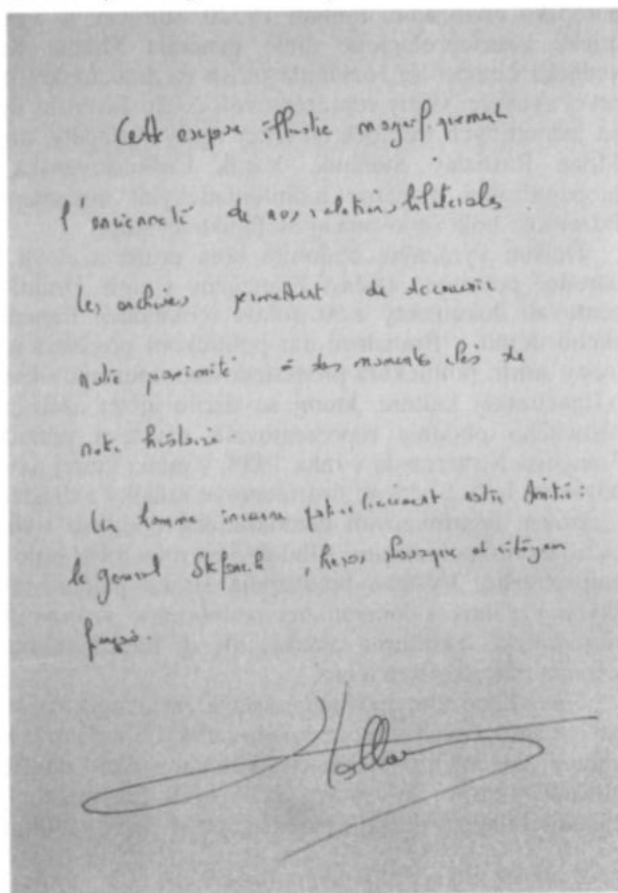 Cette expose illustre magnifiquement
l'ancienneté de nos relations bilatérales
les archives permettent de découvrir
notre proximité des moments clés de
notre histoire
Un homme incarne particulièrement cette Amitié :
le général Stefanik héros slovaque et citoyen
français.
Hollande